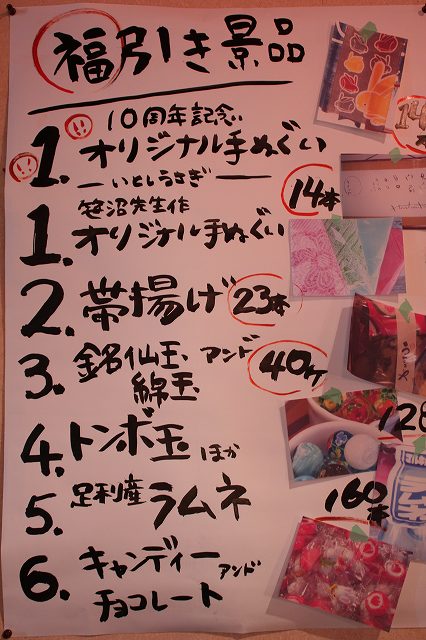 福引き景品
10周年記念
!!
!!
1. オリジナル手ぬぐい
いとしうさぎ
14本
笹沼先生作
1. オリジナル手ぬぐい
2. 帯揚げ 23本
3. 銘仙玉 アンド 40ヶ
綿玉
4. トンボ玉 ほか
128
5. 足利産 ラムネ
160本
6. キャンディー アンド
チョコレート